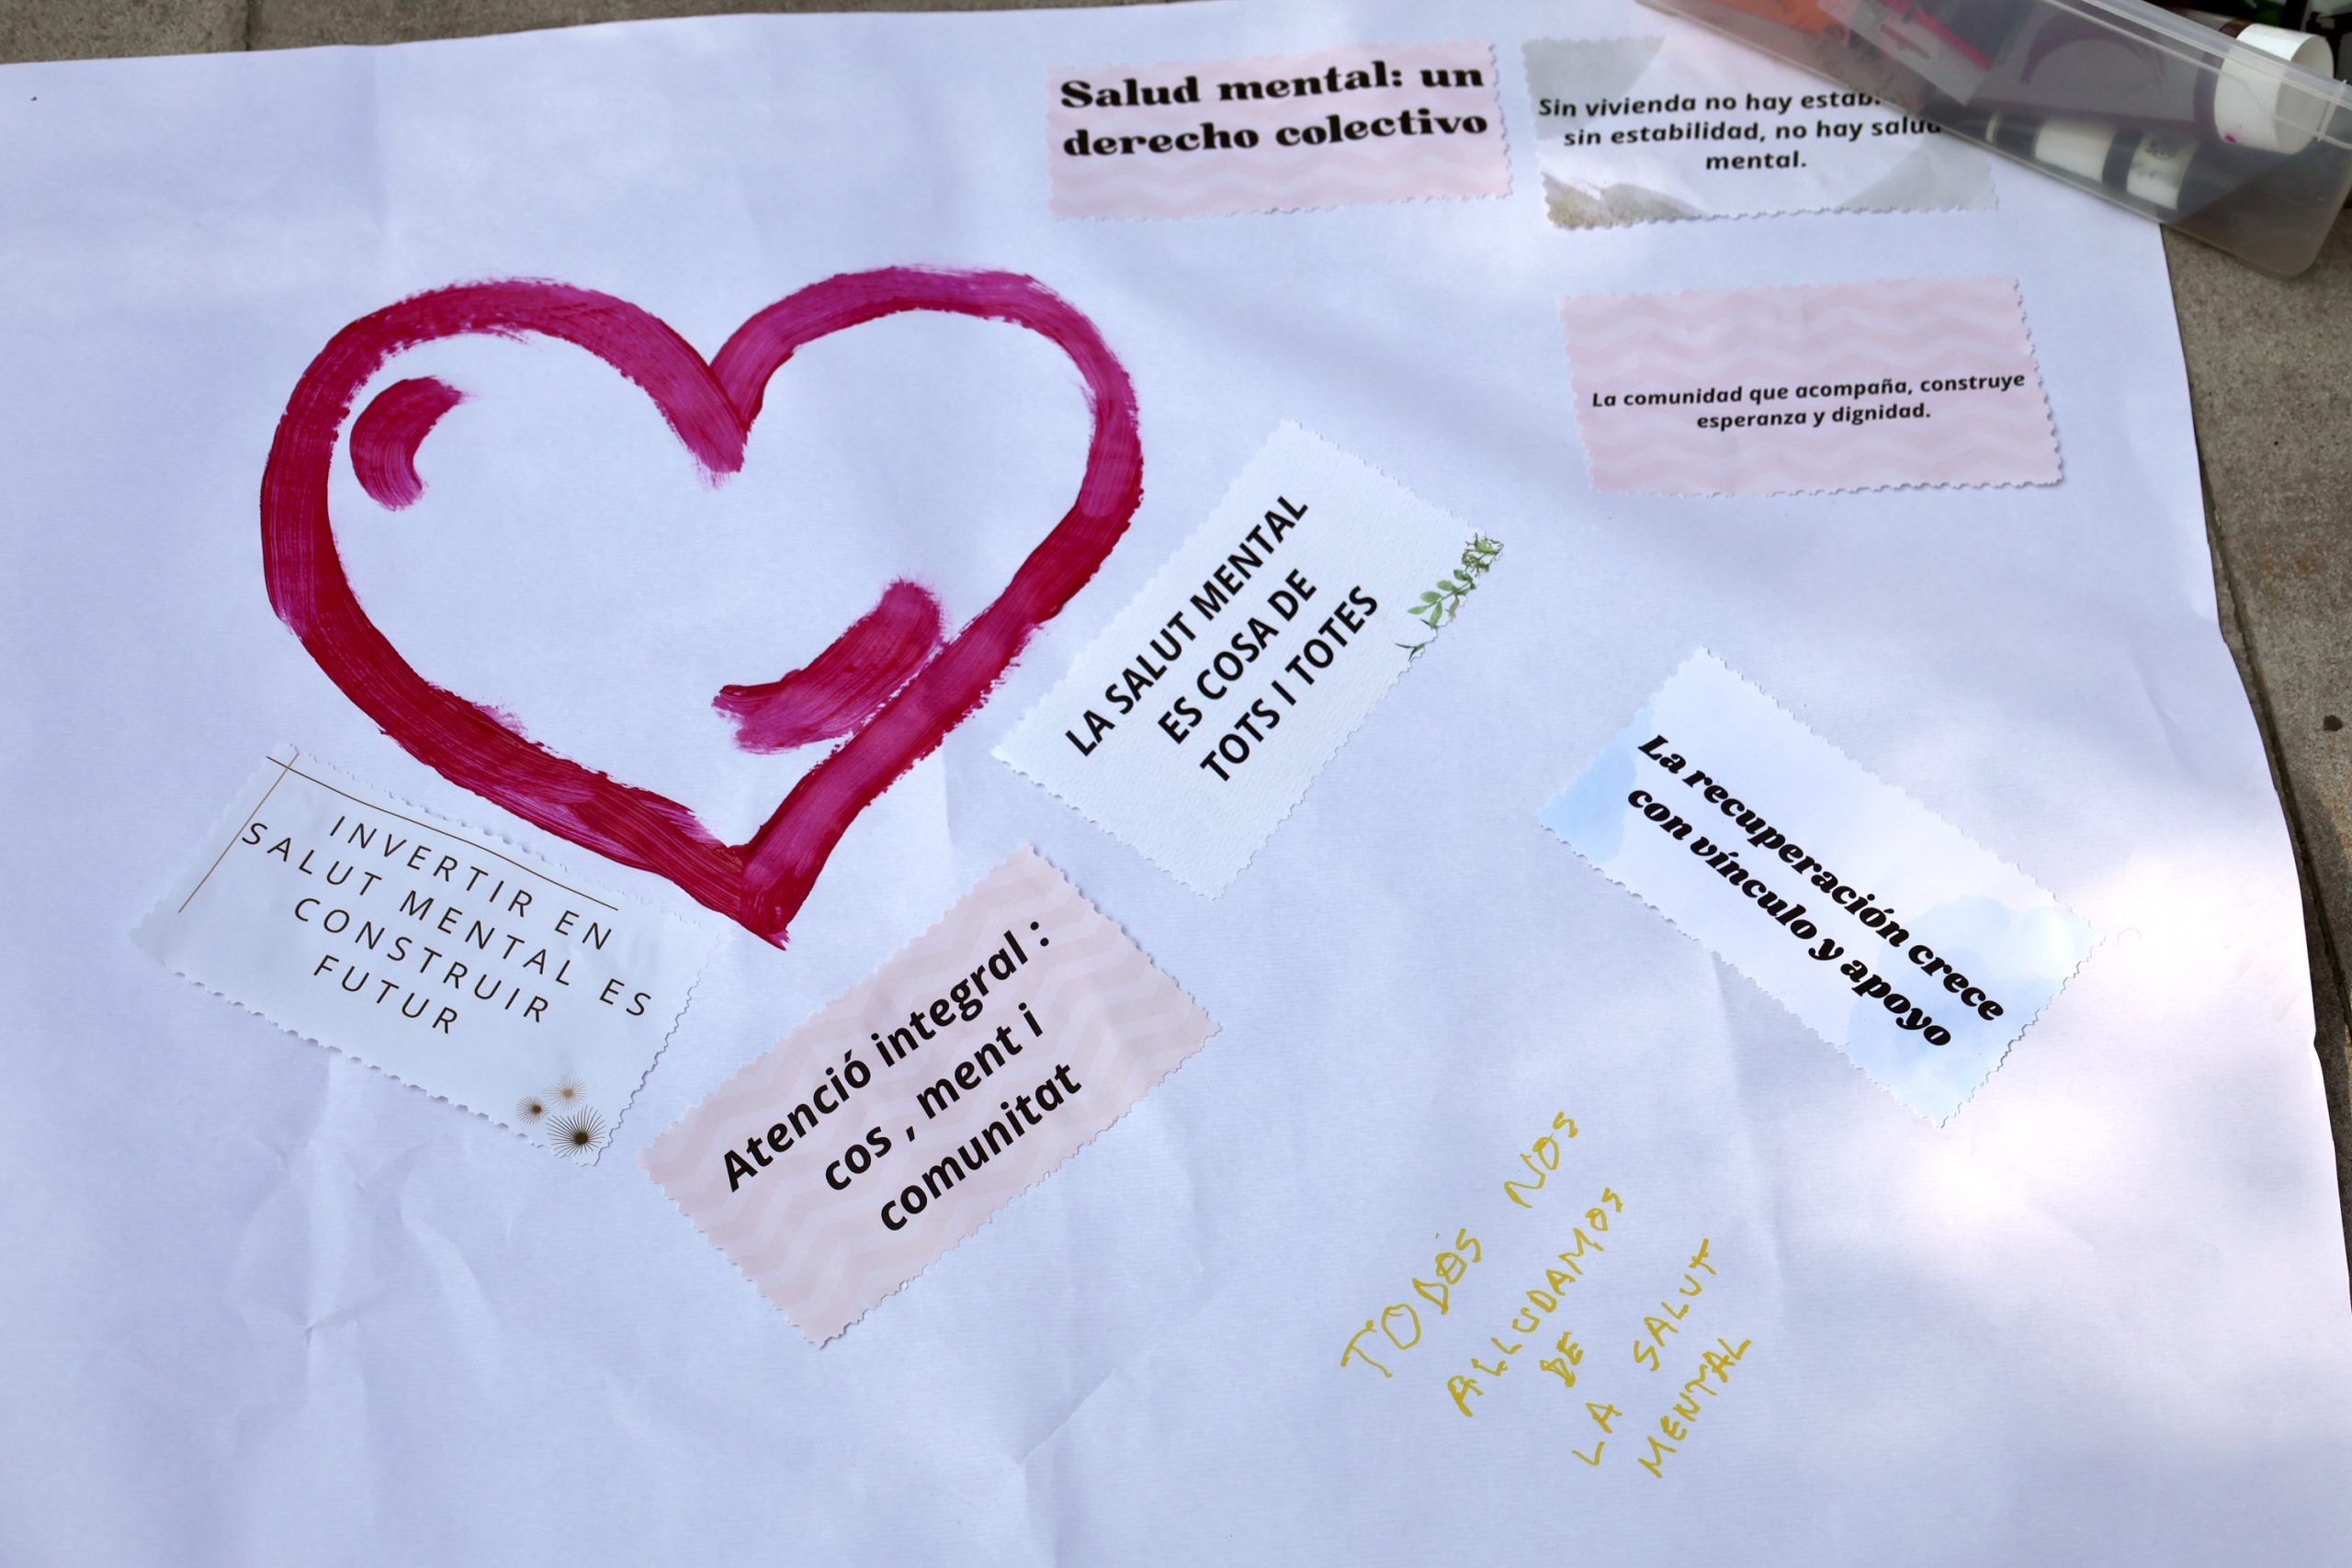 Salud mental: un
derecho colectivo
Sin vivienda no hay
sin estabilidad, no hay salud
mental.
La comunidad que acompaña, construye
esperanza y dignidad.
LA SALUT MENTAL
ES COSA DE
TOTS I TOTES
La recuperación crece
con vínculo y apoyo
INVERTIR EN
SALUT MENTAL ES
CONSTRUIR
FUTUR
Atenció integral :
cos , ment i
comunitat
TODOS NOS
ALLUDAMOS
DE
LA SALUT
MENTAL